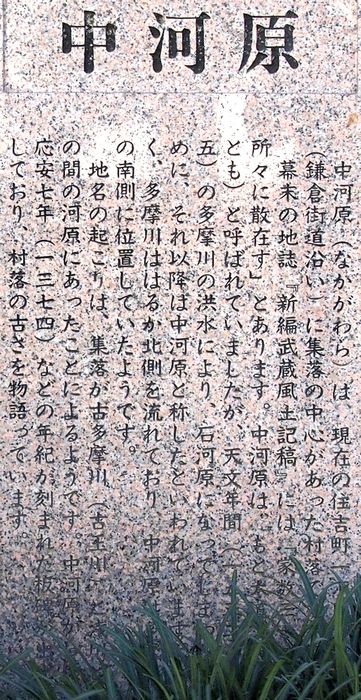 中河原
中河原（なかがわら）は、現在の住吉町一
（鎌倉街道沿い）に集落の中心があった村落で
幕末の地誌『新編武蔵風土記稿』には「家数三
所々に散在す」とあります。中河原は、もと
とも）と呼ばれていましたが、天文年間（
五）の多摩川の洪水により、石河原になってしま
めに、それ以降は中河原と称したといわれています
く、多摩川ははるか北側を流れており、中河原は
の南側に位置していたようです。
地名の起こりは、集落が古多摩川（古玉川）と
の間の河原にあったことによるようです。中河原
応安七年（一三七四）などの年紀が刻まれた板碑が
しており、村落の古さを物語っています。